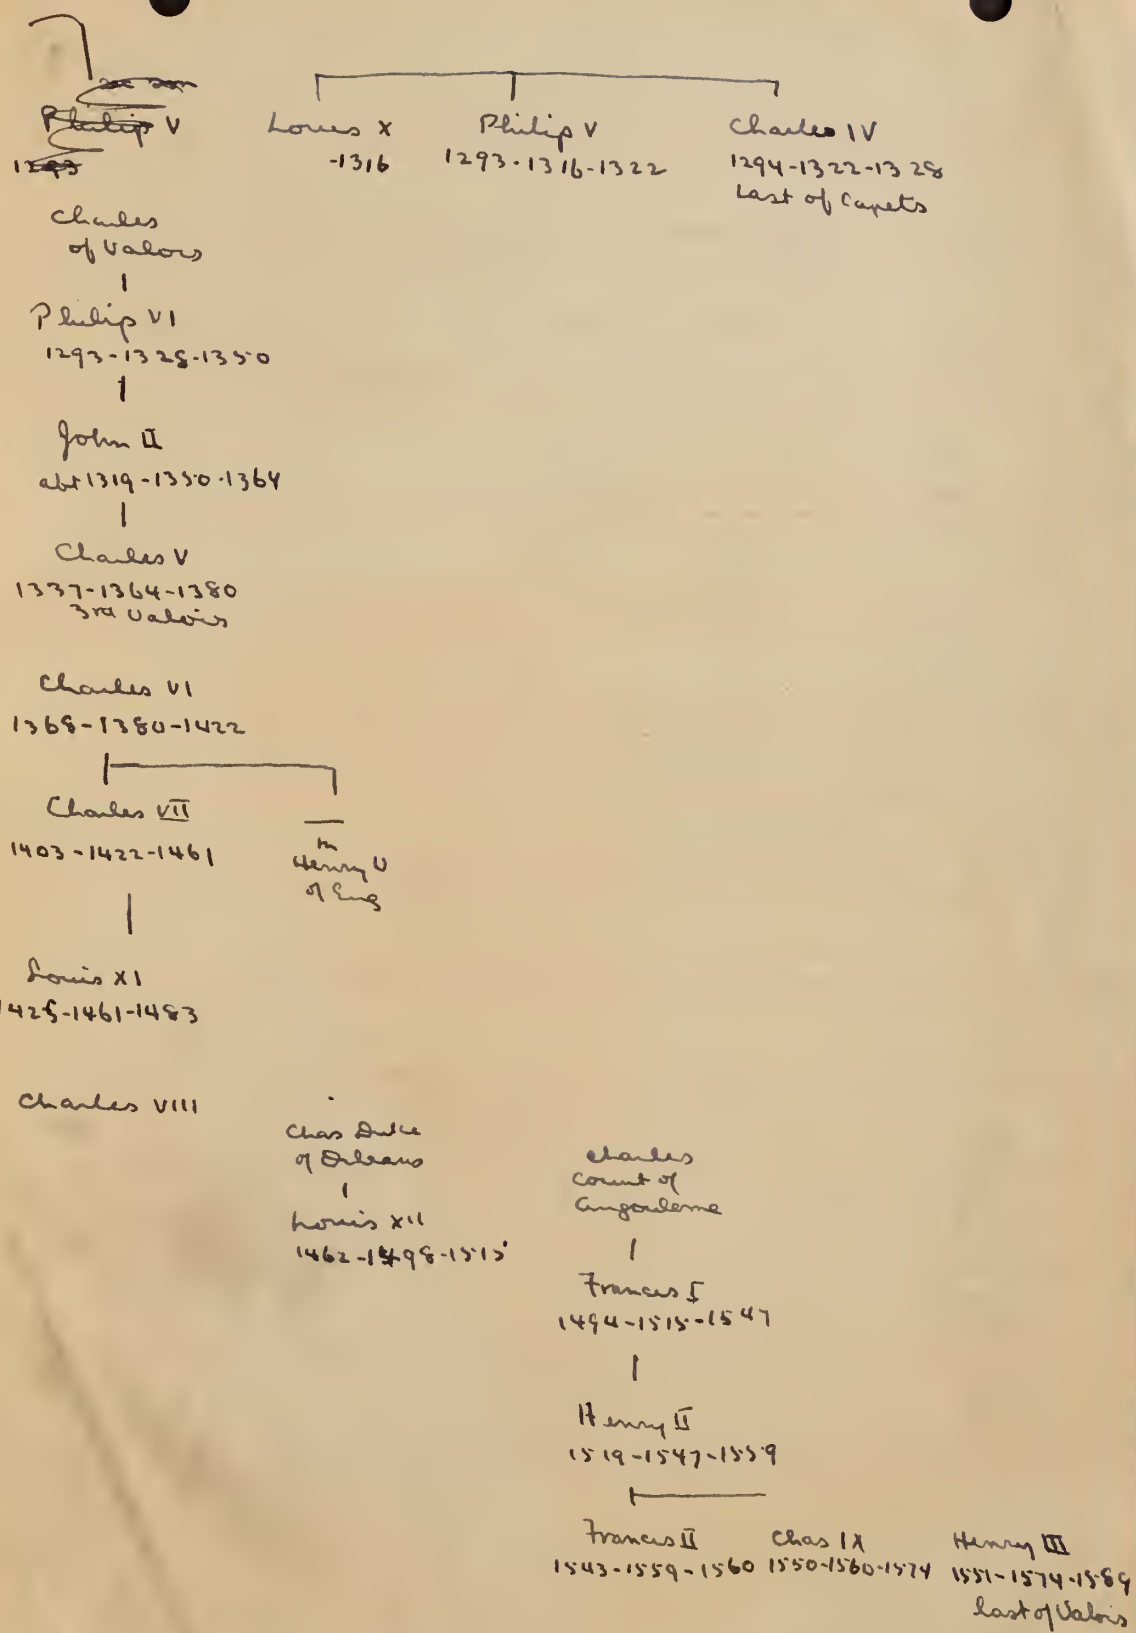 Philip V
1293
Louis X
-1316
Philip V
1293-1316-1322
Charles IV
1294-1322-1328
Last of Capets
Charles
of Valois
Philip VI
1293-1328-1350
John II
abt 1319-1350-1364
Charles V
1337-1364-1380
3rd Valois
Charles VI
1368-1380-1422
Charles VII
1403-1422-1461
m
Henry V
of Eng
Louis XI
1425-1461-1483
Charles VIII
Chas Duke
of Orleans
Louis XII
1462-1498-1515
Charles
Count of
Angouleme
Francis I
1494-1515-1547
Henry II
1519-1547-1559
Francis II
1543-1559-1560
Chas IX
1550-1560-1574
Henry III
1551-1574-1589
Last of Valois